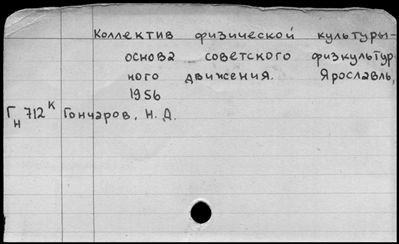 Коллектив физической культуры-
основа советского физкультур
ного движения. Ярославль,
1956
Гн 712к Гончаров, Н. Д.